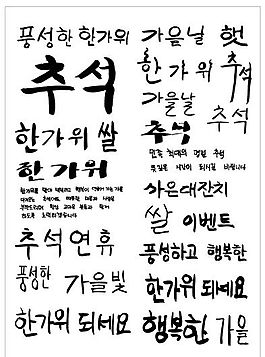 풍성한 한가위
추석
한가위 쌀
한가위
추석연휴
풍성한
가을빛
한가위 되세요
가을날
햇
한가위
추석
가을날
추석
추석
민족 최대의 명절 추석
되시길 바랍니다
가온대잔치
쌀 이벤트
풍성하고 행복한
한가위 되세요
행복한 가을